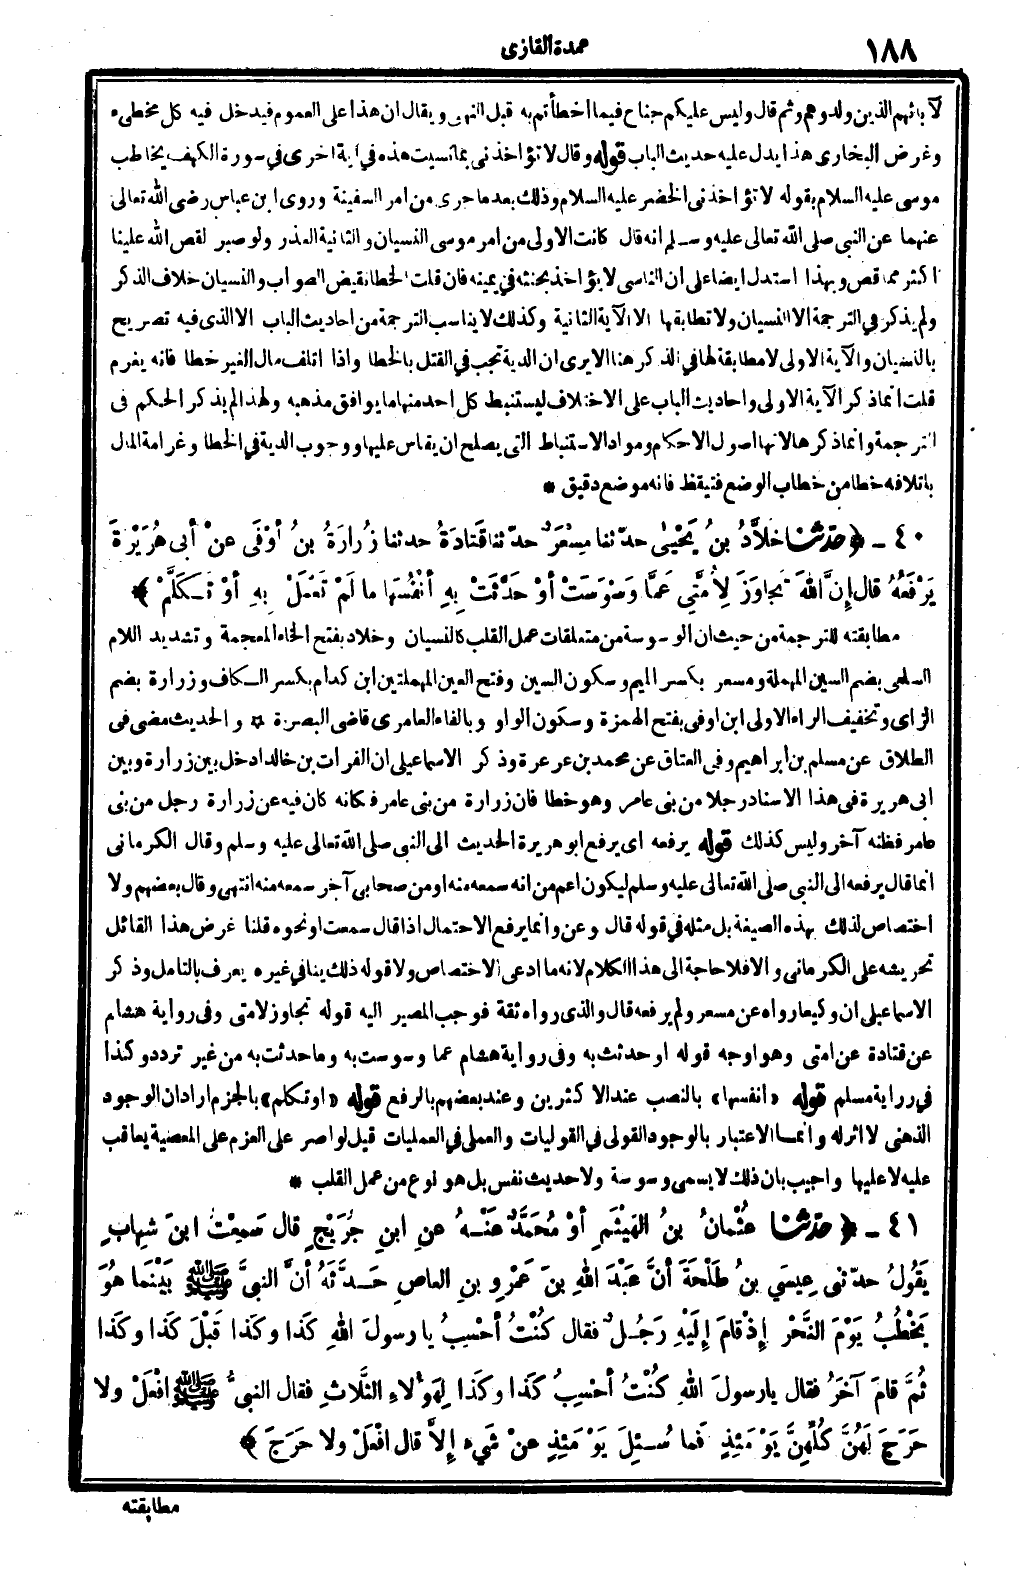 ١٨٨
عمدة القارى
لآبائهم الذين ولدوهم وثم قال وليس عليكم جناح فيما أخطأتم به قبل النهى ويقال ان هذا على العموم فيدخل فيه كل مخطىء
وغرض البخارى هذا يدل عليه حديث الباب قوله وقال لا تؤاخذنى بما نسيت هذه في آية اخرى في سورة الكهف يخاطب
موسى عليه السلام بقوله لا تؤاخذنى الخضر عليه السلام وذلك بعد ما جرى من امر السفينة وروى ابن عباس رضى الله تعالى
عنهما عن النبي صلى الله تعالى عليه وسلم انه قال كانت الاولى من امر موسى النسيان والثانية العذر ولو صبر لقص الله علينا
اكثر مما قص وبهذا استدل ايضا على ان الناسى لا يؤاخذ بحنثه في يمينه فان قلت الخطا نقيض الصواب والنسيان خلاف الذكر
ولم يذكر في الترجمة الا النسيان ولا تطابقها الا الآية الثانية وكذلك لا يناسب الترجمة من احاديث الباب الا الذى فيه تصريح
بالنسيان والآية الاولى لا مطابقة لها في الذكر هنا الا يرى ان الدية تجب في القتل بالخطا واذا اتلف مال الغير خطا فانه يغرم
قلت انما ذكر الآية الاولى واحاديث الباب على الاختلاف ليستنبط كل احد منها ما يوافق مذهبه ولهذا لم يذكر الحكم فى
الترجمة وانما ذكرها لانها اصول الاحكام ومواد الاستنباط التى يصلح ان يقاس عليها ووجوب الدية في الخطا وغرامة المال
باتلافه خطا من خطاب الوضع فتيقظ فانه موضع دقيق *
٤٠ ـ ﴿ حدّثنا خَلاَّدُ بنُ يَحْيَى حدّثنا مِسْعَرٌ حدّثنا قَتَادَةُ حدثنا زُرارَةُ بنُ أوْفَى عنْ أبى هُرَيْرَةَ
يَرْفَعُهُ قال إنَّ اللهَ تجاوَزَ لِأُمَّتِي عَمَّا وَسْوَسَتْ أوْ حَدَّثَتْ بِهِ أنْفُسَها ما لَمْ تَعْمَلْ بِهِ أوْ تَكَلَّمْ ﴾
مطابقته للترجمة من حيث ان الوسوسة من متعلقات عمل القلب كالنسيان وخلاد بفتح الخاء المعجمة وتشديد اللام
السلمى بضم السين المهملة ومسعر بكسر الميم وسكون السين وفتح العين المهملتين ابن كدام بكسر الكاف وزرارة بضم
الزاى وتخفيف الراء الاولى ابن اوفى بفتح الهمزة وسكون الواو وبالفاء العامرى قاضى البصرة * والحديث مضى فى
الطلاق عن مسلم بن ابراهيم وفى العتاق عن محمد بن عرعرة وذكر الاسماعيلى ان الفرات بن خالد ادخل بين زرارة وبين
ابى هريرة فى هذا الاسناد رجلا من بنى عامر وهو خطا فان زرارة من بنى عامر فكانه كان فيه عن زرارة رجل من بنى
عامر فظنه آخر وليس كذلك قوله يرفعه اى يرفع ابو هريرة الحديث الى النبي صلى الله تعالى عليه وسلم وقال الكرمانى
انما قال يرفعه الى النبي صلى الله تعالى عليه وسلم ليكون اعم من انه سمعه منه او من صحابى آخر سمعه منه انتهى وقال بعضهم ولا
اختصاص لذلك بهذه الصيغة بل مثله في قوله قال وعن وانما يرفع الاحتمال اذا قال سمعت او نحوه قلنا غرض هذا القائل
تحريشه على الكرمانى والا فلا حاجة الى هذا الكلام لانه ما ادعى الاختصاص ولا قوله ذلك ينافي غيره يعرف بالتامل وذكر
الاسماعيلى ان وكيعا رواه عن مسعر ولم يرفعه قال والذى رواه ثقة فوجب المصير اليه قوله تجاوز لامتى وفى رواية هشام
عن قتادة عن امتى وهو اوجه قوله او حدثت به وفى رواية هشام عما وسوست به وما حدثت به من غير تردد وكذا
في رواية مسلم قوله «انفسها» بالنصب عند الاكثرين وعند بعضهم بالرفع قوله «او تكلم» بالجزم ارادان الوجود
الذهنى لا اثر له وانما الاعتبار بالوجود القولى في القوليات والعملى في العمليات قيل لو اصر على العزم على المعصية يعاقب
عليه لا عليها واجيب بان ذلك لا يسمى وسوسة ولا حديث نفس بل هو نوع من عمل القلب *
٤١ ـ ﴿ حدّثنا عُثْمانُ بنُ الهَيْثَمِ أوْ مُحَمَّدٌ عَنْهُ عنِ ابنِ جُرَيْجٍ قال سَمِعْتُ ابنَ شِهابٍ
يَقُولُ حدّثنى عِيسَى بنُ طَلْحَةَ أنَّ عَبْدَ اللهِ بنَ عَمْرِو بنِ العاصِ حَدَّثَهُ أنَّ النبيَّ ﷺ بَيْنَما هُوَ
يَخْطُبُ يَوْمَ النَّحْرِ إذْ قامَ إلَيْهِ رَجُلٌ فقال كُنْتُ أحْسِبُ يا رسولَ اللهِ كَذا وكَذا قَبْلَ كَذا وكَذا
ثُمَّ قامَ آخَرُ فقال يا رسولَ اللهِ كُنْتُ أحْسِبُ كَذا وكَذا لِهَؤُلاءِ الثَّلاثِ فقال النبيُّ ﷺ افْعَلْ ولا
حَرَجَ لَهُنَّ كُلِّهِنَّ يَوْمَئِذٍ فَما سُئِلَ يَوْمَئِذٍ عنْ شَيءٍ إلاَّ قال افْعَلْ ولا حَرَجَ ﴾
مطابقته